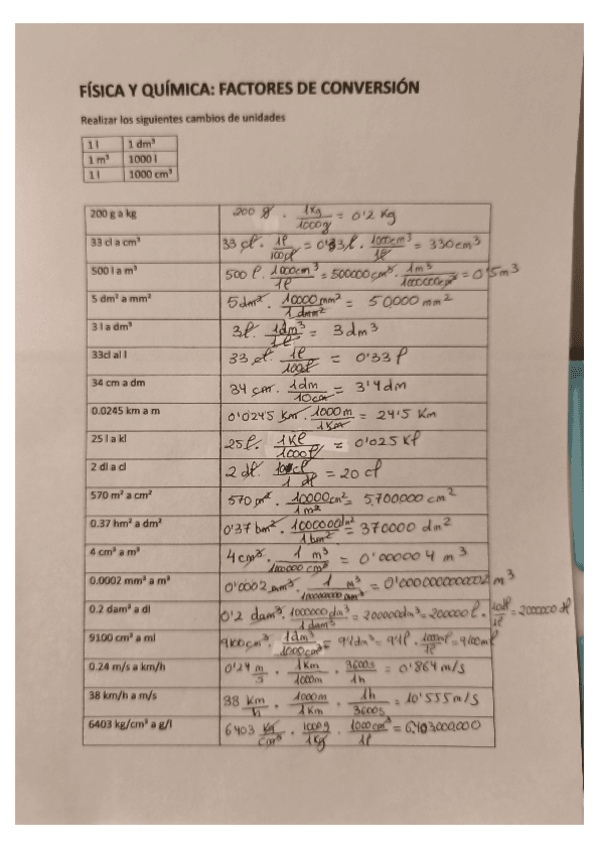 FÍSICA Y QUÍMICA: FACTORES DE CONVERSIÓN
Realizar los siguientes cambios de unidades
1 l 1 dm³
1 m³ 1000 l
1 l 1000 cm³
200 g a kg 200 g · 1kg/1000g = 0'2 Kg
33 cl a cm³ 33 cl · 1l/100cl = 0'33l · 1000cm³/1l = 330cm³
500 l a m³ 500 l · 1000cm³/1l = 500000cm³ · 1m³/1000000cm³ = 0'5m³
5 dm² a mm² 5dm² · 10000mm²/1dm² = 50000mm²
3 l a dm³ 3l · 1dm³/1l = 3dm³
33cl al l 33 cl · 1l/100cl = 0'33l
34 cm a dm 34 cm · 1dm/10cm = 3'4dm
0.0245 km a m 0'0245 Km · 1000m/1Km = 24'5 Km
25 l a kl 25l · 1Kl/1000l = 0'025Kl
2 dl a cl 2 dl · 10cl/1dl = 20 cl
570 m² a cm² 570m² · 10000cm²/1m² = 5.700000cm²
0.37 hm² a dm² 0'37hm² · 1000000dm²/1hm² = 370000dm²
4 cm³ a m³ 4cm³ · 1m³/1000000cm³ = 0'000004m³
0.0002 mm³ a m³ 0'0002mm³ ·
0.2 dam³ a dl 0'2 dam³ · 1000000dm³/1dam³ = 200000dm³ = 200000l · 10dl/1l = 2000000dl
9100 cm³ a ml 9100cm³ · 1dm³/1000cm³ = 9'1dm³ = 9'1l · 1000ml/1l = 9100ml
0.24 m/s a km/h 0'24 m/s · 1Km/1000m · 3600s/1h = 0'864m/s
38 km/h a m/s 38 Km/h · 1000m/1Km · 1h/3600s = 10'555m/s
6403 kg/cm³ a g/l 6403 Kg/cm³ · 1000g/1Kg · 1000cm³/1l = 6.403000.000